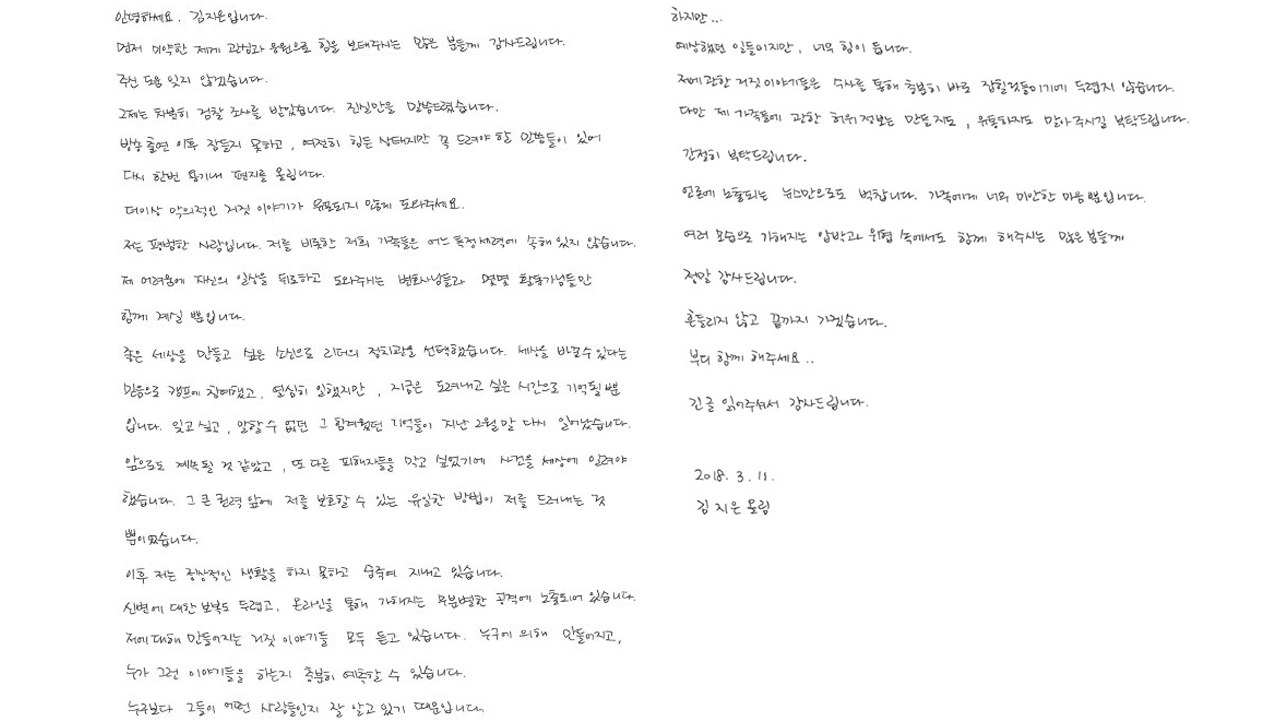 안녕하세요. 김지은입니다.
먼저 미약한 제게 관심과 응원으로 힘을 보태주시는 많은 분들께 감사드립니다.
주신 도움 잊지 않겠습니다.
그제는 차분히 검찰 조사를 받았습니다. 진실만을 말씀드렸습니다.
방송 출연 이후 잠들지 못하고, 여전히 힘든 상태지만 꼭 드려야 할 말씀들이 있어
다시 한번 용기내 편지를 올립니다.
더이상 악의적인 거짓 이야기가 유포되지 않게 도와주세요.
저는 평범한 사람입니다. 저를 비롯한 저희 가족들은 어느 특정 세력에 속해 있지 않습니다.
제 어려움에 자신의 일상을 뒤로하고 도와주시는 변호사님들과 몇몇 활동가님들만
함께 계실 뿐입니다.
좋은 세상을 만들고 싶은 소신으로 리더의 정치관을 선택했습니다. 세상을 바꿀 수 있다는
믿음으로 캠프에 참여했고, 열심히 일했지만, 지금은 도려내고 싶은 시간으로 기억될 뿐
입니다. 잊고 싶고, 말할 수 없던 그 힘겨웠던 기억들이 지난 2월 말 다시 일어났습니다.
앞으로도 계속될 것 같았고, 또 다른 피해자들을 막고 싶었기에 사건을 세상에 알려야
했습니다. 그 큰 권력 앞에 저를 보호할 수 있는 유일한 방법이 저를 드러내는 것
뿐이었습니다.
이후 저는 정상적인 생활을 하지 못하고 숨죽여 지내고 있습니다.
신변에 대한 보복도 두렵고, 온라인을 통해 가해지는 무분별한 공격에 노출되어 있습니다.
저에 대해 만들어지는 거짓 이야기들 모두 듣고 있습니다. 누구에 의해 만들어지고,
누가 그런 이야기들을 하는지 충분히 예측할 수 있습니다.
누구보다 그들이 어떤 사람들인지 잘 알고 있기 때문입니다.
하지만...
예상했던 일들이지만, 너무 힘이 듭니다.
저에 관한 거짓 이야기들은 수사를 통해 충분히 바로 잡힐것들이기에 두렵지 않습니다.
다만 제 가족들에 관한 허위 정보는 만들지도, 유통하지도 말아 주시길 부탁드립니다.
간절히 부탁드립니다.
언론에 노출되는 뉴스만으로도 벅찹니다. 가족에게 너무 미안한 마음뿐입니다.
여러 모습으로 가해지는 압박과 위협 속에서도 함께 해주시는 많은 분들께
정말 감사드립니다.
흔들리지 않고 끝까지 가겠습니다.
부디 함께 해주세요..
긴글 읽어주셔서 감사드립니다.
2018. 3. 11.
김지은 올림